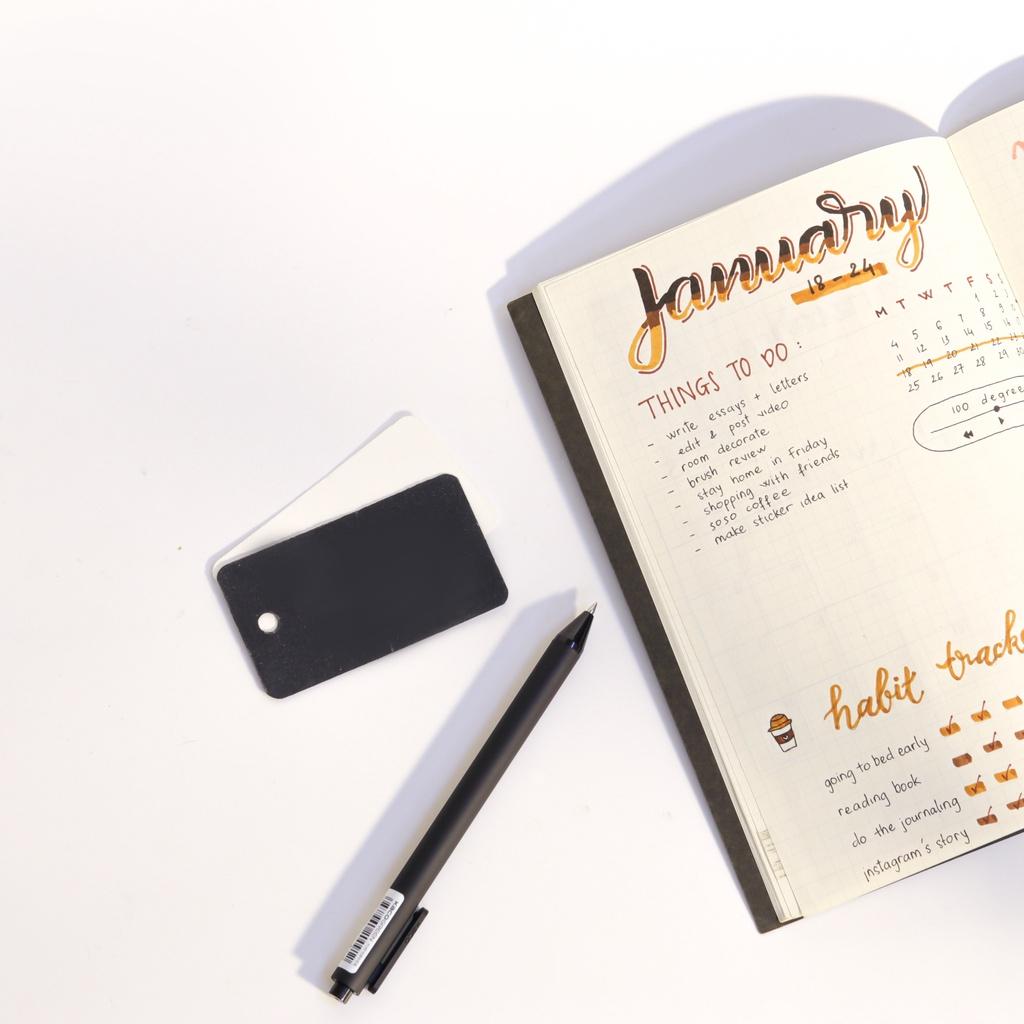 January
18 - 24
M T W T F S
1 2
4 5 6 7 8 9
11 12 13 14 15 16
18 19 20 21 22
25 26 27 28 29 30
100 degree
THINGS TO DO :
- write essays + letters
- edit & post video
- room decorate
- brush review
- stay home in Friday
- shopping with friends
- soso coffee
- make sticker idea list
habit track
going to bed early
reading book
do the journaling
instagram's story